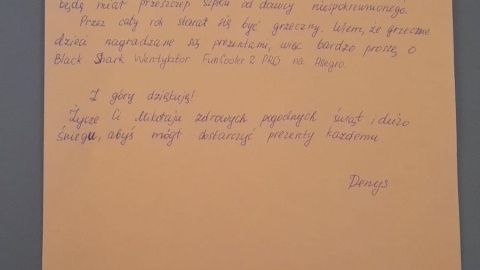 będą miał przeszczep szpiku od dawcy niespokrewnionego.
Przez cały rok starał się być grzeczny. Wiem, że grzeczne
dzieci nagradzane są prezentami, więc bardzo proszę o
Black Shark Wentylator FunCooler 2 PRO na Allegro.
Z góry dziękuję!
Życzę Ci Mikołaju zdrowych pogodnych świąt i dużo
śniegu, abyś mógł dostarczyć prezenty każdemu.
Denys